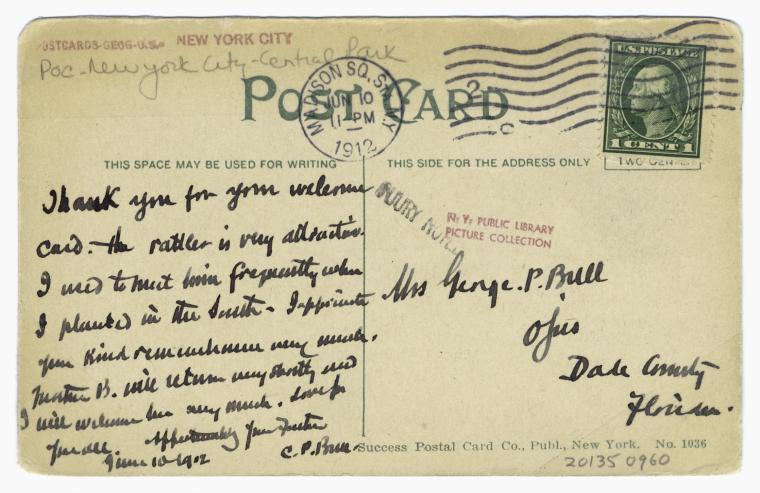 POSTCARDS-GEOG-U.S. NEW YORK CITY
Poc-New York City-Central Park
POST CARD
MADISON SQ. STA. N.Y.
JUN 10
11-PM
1912
2
c
U.S. POSTAGE
1 CENT 1
THIS SPACE MAY BE USED FOR WRITING
THIS SIDE FOR THE ADDRESS ONLY
TWO CENTS
Thank you for your welcome
card. - the rattler is very attractive.
I used to meet him frequently when
I planted in the South - I appreciate
your kind remembrance very much.
Mother B. will return very shortly and
I will welcome her very much. Love for
you all. Affectionately your Father
C. P. Bull
June 10-1912
INJURY NOTED
N. Y. PUBLIC LIBRARY
PICTURE COLLECTION
Mrs George. P. Bull
Ojus
Dade County
Florida.
Success Postal Card Co., Publ., New York. No. 1036
20135 0960